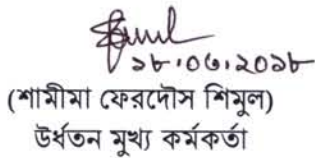 ১৮.০৩.২০১৮
(শামীমা ফেরদৌস শিমুল)
উর্ধতন মুখ্য কর্মকর্তা